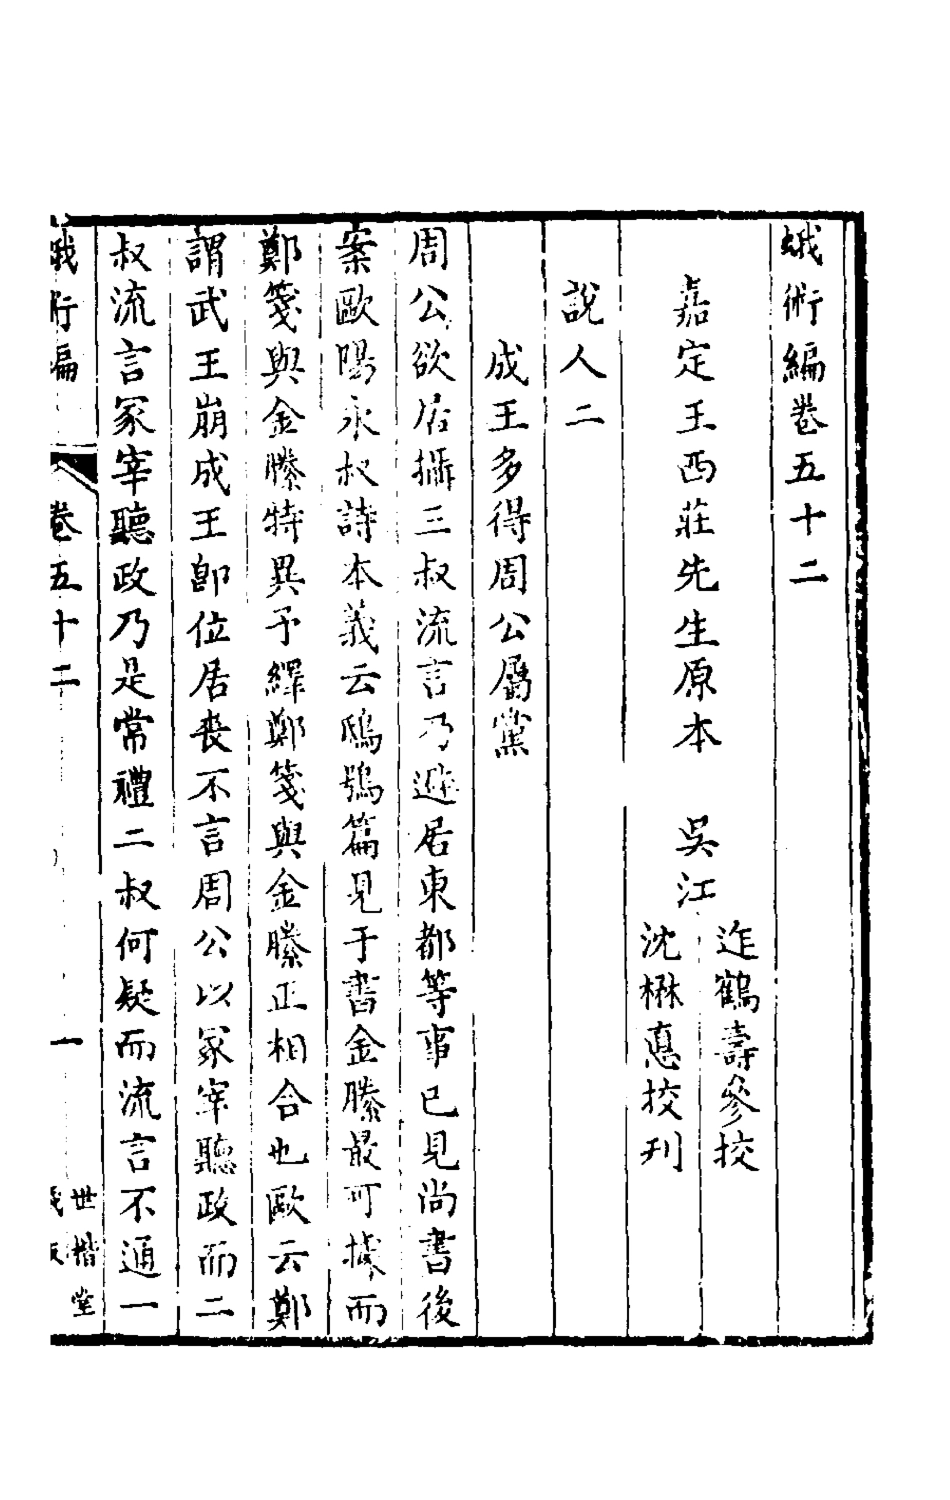 蛾術編卷五十二
嘉定王西莊先生原本　吳江
迮鶴壽參校
沈楙悳校刊
說人二
成王多得周公屬黨
周公欲居攝三叔流言乃避居東都等事已見尚書後
案歐陽永叔詩本義云鴟鴞篇見于書金縢最可據而
鄭箋與金縢特異予繹鄭箋與金縢正相合也歐云鄭
謂武王崩成王卽位居喪不言周公以冢宰聽政而二
叔流言冢宰聽政乃是常禮二叔何疑而流言不通一
蛾術編
卷五十二
一
世楷堂